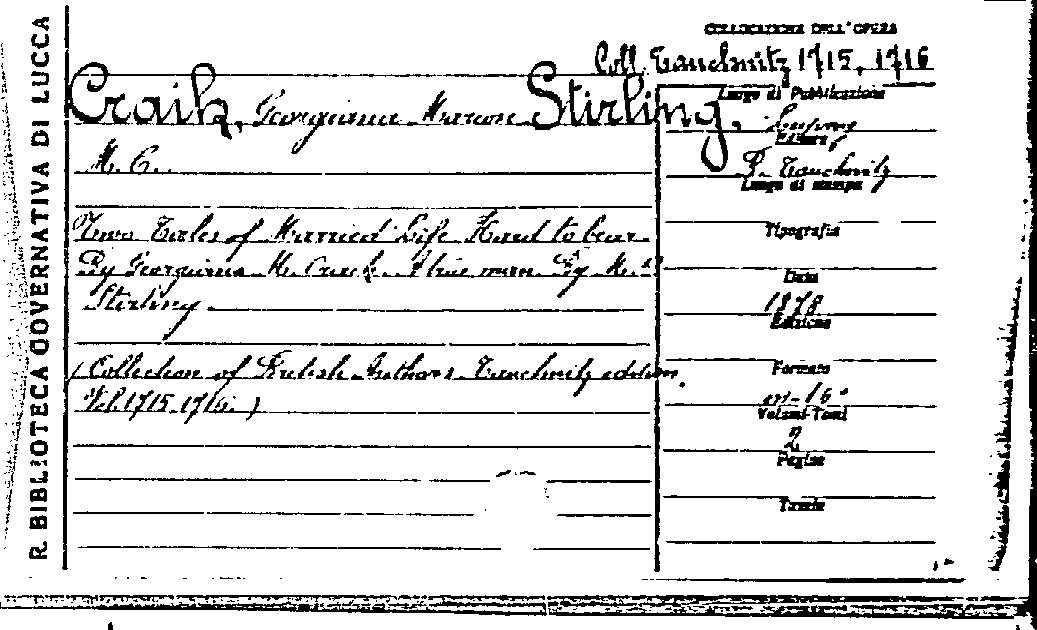 R. BIBLIOTECA GOVERNATIVA DI LUCCA
COLLOCAZIONE DELL'OPERA
Coll. Tauchnitz 1715, 1716
Craik, Georgiana Marion Stirling,
M. C.
Two Tales of Married Life Hard to bear.
By Georgiana M. Craik. A true man. By M. C.
Stirling
(Collection of British Authors Tauchnitz edition.
Vol. 1715-1716.)
Luogo di Pubblicazione
Editore
B. Tauchnitz
Luogo di stampa
Tipografia
Data
1878
Edizione
Formato
in-16°
Volumi-Tomi
2
Pagine
Tavole